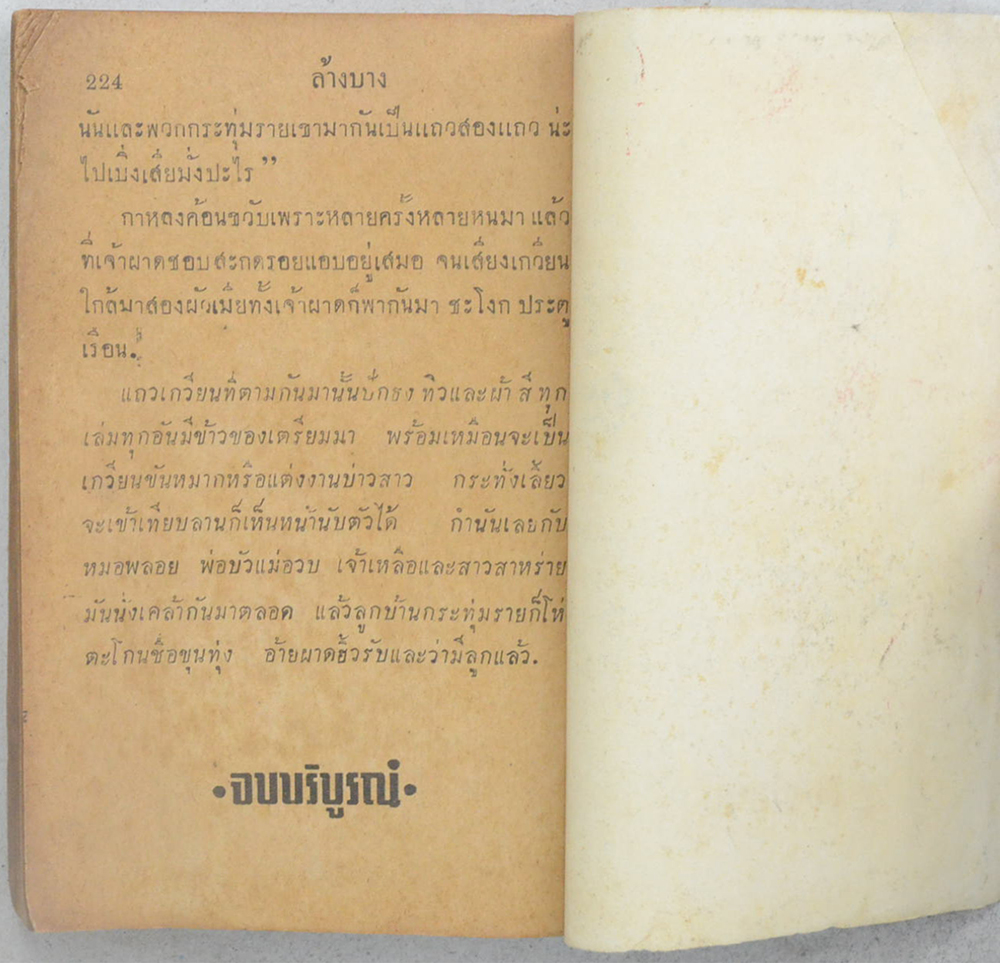 224 ล้างบาง
นั่นและพวกกระทุ่มรายเขามากันเป็นแถวสองแถว น่ะ
ไปเบิ่งเสียมั่งปะไร”
กาหลงค้อนขวับเพราะหลายครั้งหลายหนมา แล้ว
ที่เจ้าผาดชอบสะกดรอยแอบอยู่เสมอ จนเสียงเกวียน
ใกล้มาสองผัวเมียทั้งเจ้าผาดก็พากันมา ชะโงก ประตู
เรือน.
แถวเกวียนที่ตามกันมานั้นปักธง ทิวและผ้า สี ทุก
เล่มทุกอันมีข้าวของเตรียมมา พร้อมเหมือนจะเป็น
เกวียนขันหมากหรือแต่งงานบ่าวสาว กระทั่งเลี้ยว
จะเข้าเทียบลานก็เห็นหน้านับตัวได้ กำนันเลยกับ
หมอพลอย พ่อบัวแม่อวบ เจ้าเหลือและสาวสาหร่าย
มันนั่งเคล้ากันมาตลอด แล้วลูกบ้านกระทุ่มรายก็โห่
ตะโกนชื่อขุนทุ่ง อ้ายผาดฮิ้วรับและว่ามีลูกแล้ว.
•จบบริบูรณ์•